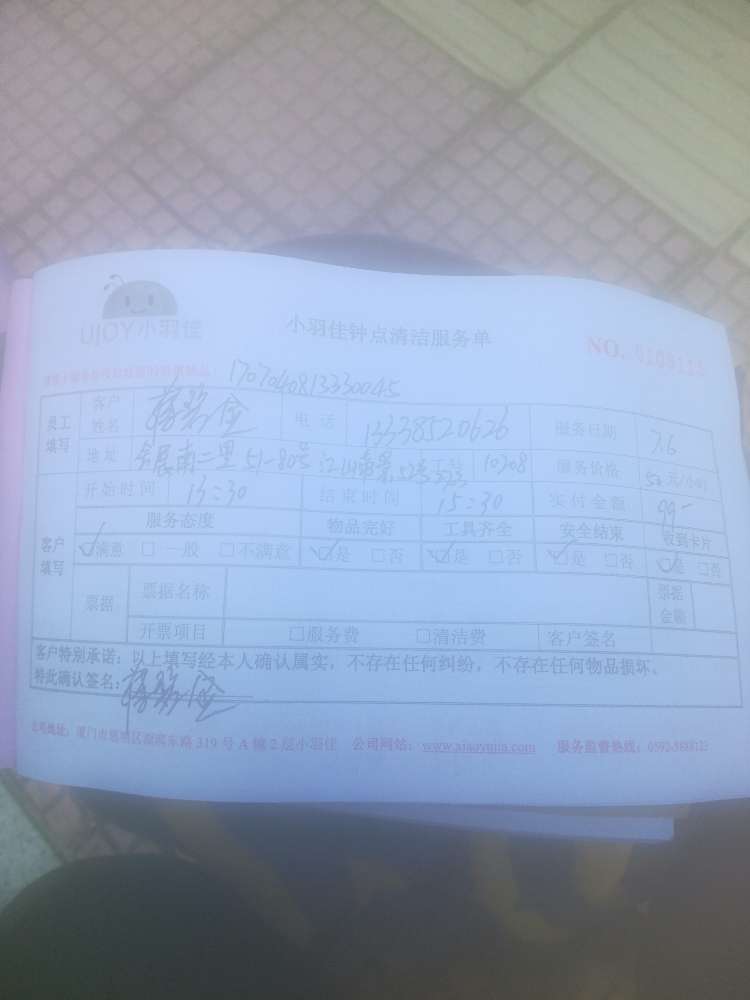 UJOY小羽佳
小羽佳钟点清洁服务单
NO.
1707040813330045
员工填写 客户姓名 电话 13338520626 服务日期 7.6
地址 南二里51-80号 工号 10308 服务价格 50元/小时
客户填写 开始时间 13:30 结束时间 15:30 实付金额 99-
服务态度 物品完好 工具齐全 安全结束 收到卡片
☑满意 □一般 □不满意 ☑是 □否 ☑是 □否 ☑是 □否 ☑是 □否
票据 票据名称 票据金额
开票项目 □服务费 □清洁费 客户签名
客户特别承诺：以上填写经本人确认属实，不存在任何纠纷，不存在任何物品损坏。
特此确认签名：
公司地址：厦门市思明区 东路319号A幢2层小羽佳 公司网站： 服务监督热线：